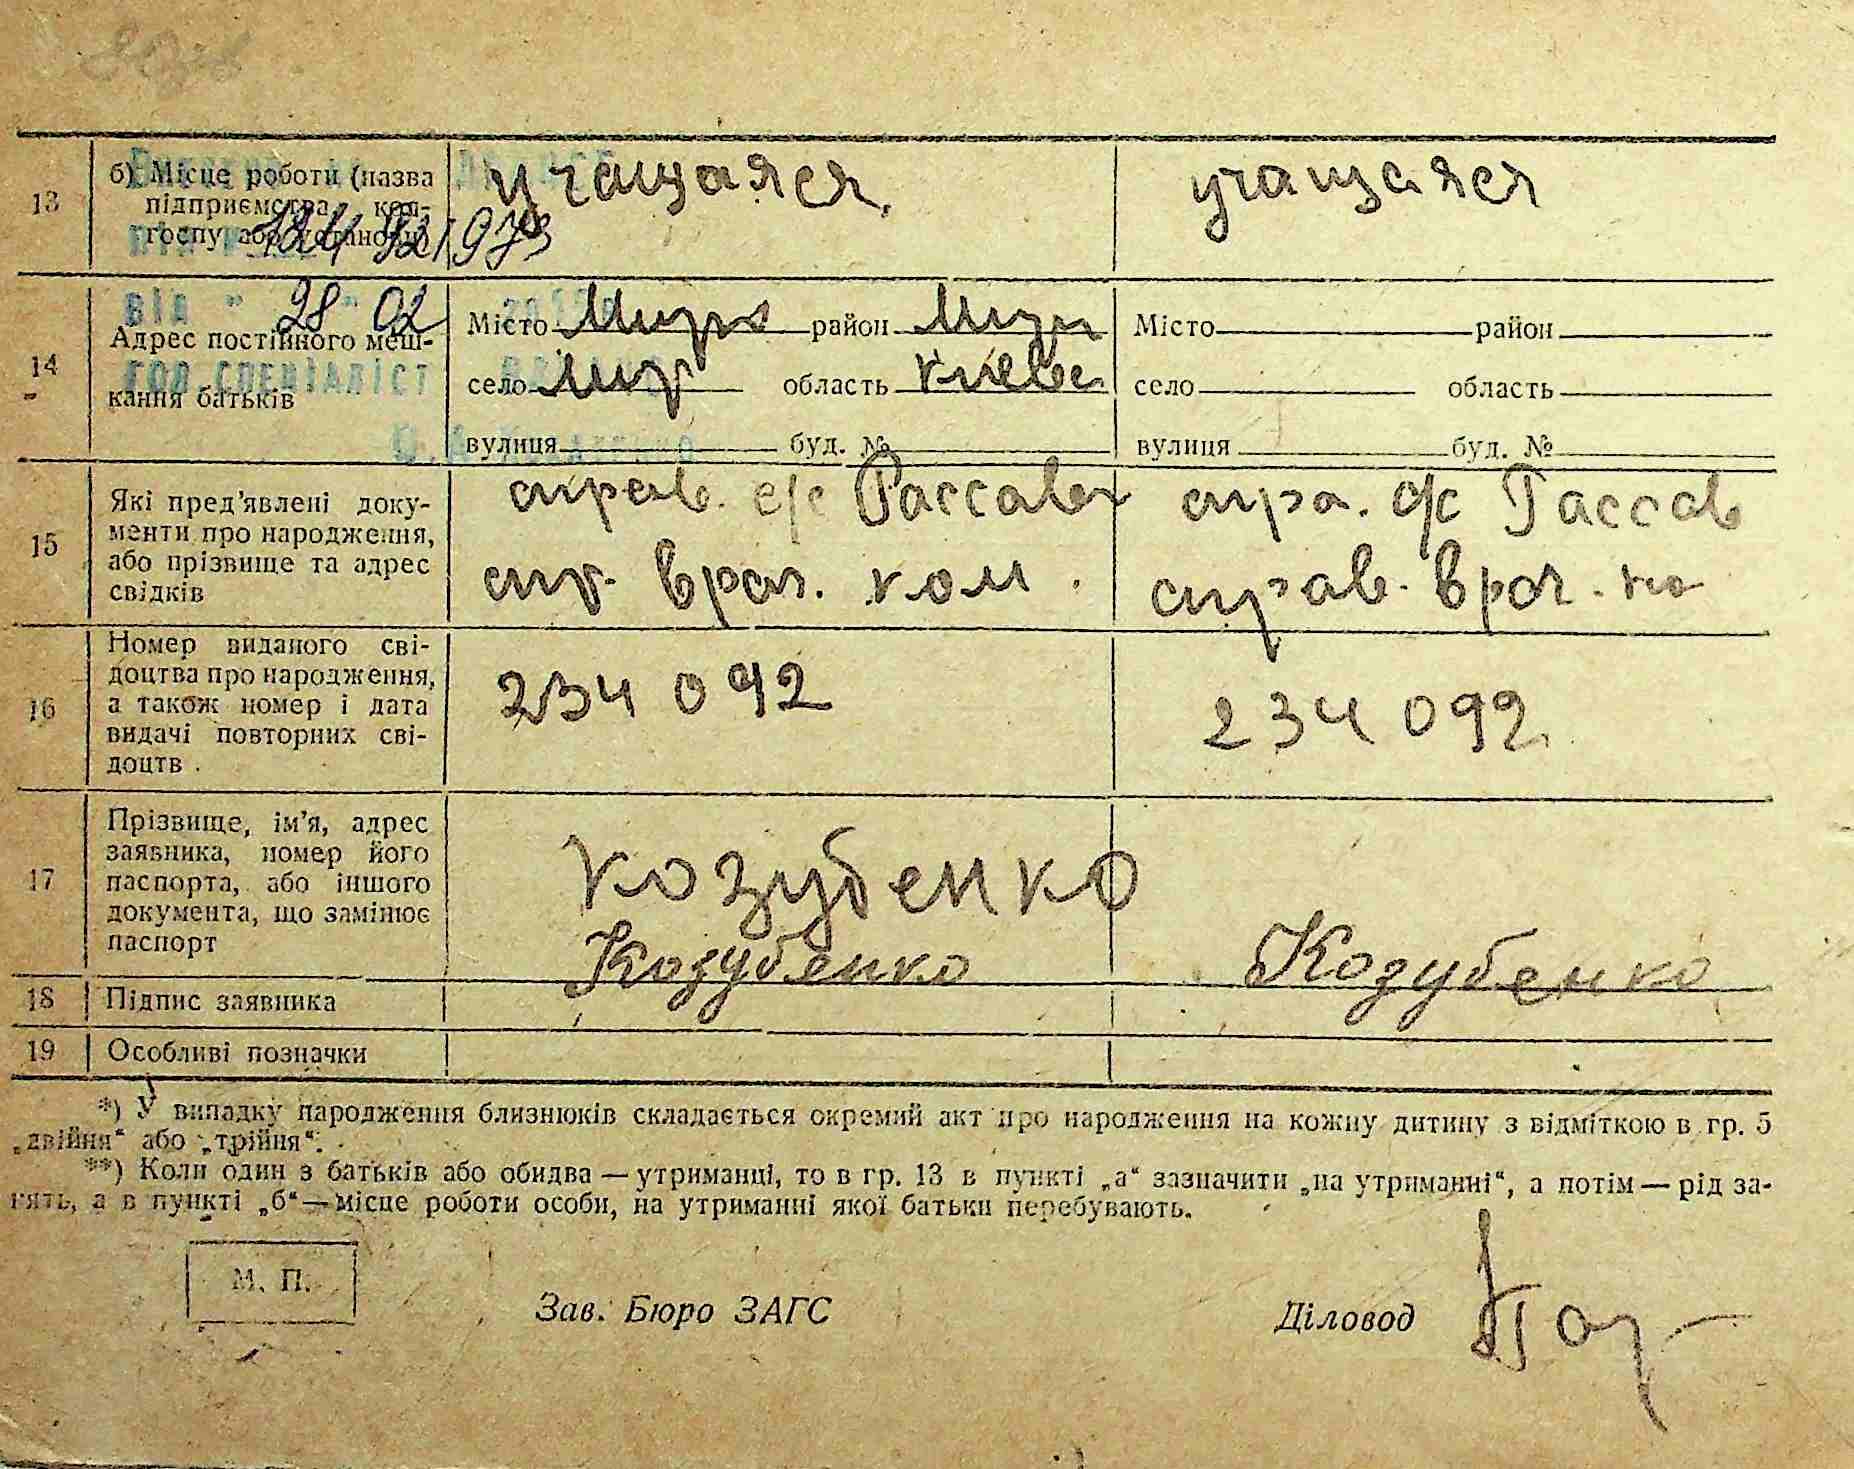 13
б) Місце роботи (назва
підприємства, кол-
госпу або установи)
учащаяся
учащаяся
від " 28 " 02
год спеціаліст
14
Адрес постійного меш-
кання батьків
Місто район
село область Киевс
вулиця буд. №
Місто район
село область
вулиця буд. №
15
Які пред'явлені доку-
менти про народження,
або прізвище та адрес
свідків
справ. с/с Рассав
врач. ком.
с/с Рассав
справ. врач. ко
16
Номер виданого сві-
доцтва про народження,
а також номер і дата
видачі повторних сві-
доцтв
234 092
234 092
17
Прізвище, ім'я, адрес
заявника, номер його
паспорта, або іншого
документа, що замінює
паспорт
Козубенко
18
Підпис заявника
Козубенко
Козубенко
19
Особливі позначки
*) У випадку народження близнюків складається окремий акт про народження на кожну дитину з відміткою в гр. 5
„двійня“ або „трійня“.
**) Коли один з батьків або обидва — утриманці, то в гр. 13 в пункті „а“ зазначити „на утриманні“, а потім — рід за-
нять, а в пункті „б“ — місце роботи особи, на утриманні якої батьки перебувають.
М. П.
Зав. Бюро ЗАГС
Діловод